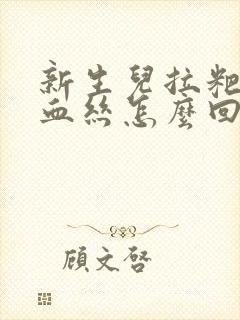 新生兒拉粑
血絲怎麼回
顧文啓